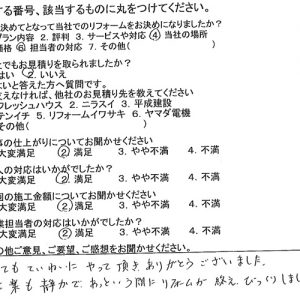 する番号、該当するものに丸をつけてください。
決めてとなって当社でのリフォームをお決めになりましたか?
プラン内容 2. 評判 3. サービスや対応 ④ 当社の場所
価格 ⑥ 担当者の対応 7. その他(
社でもお見積りを取られましたか?
はい ② いいえ
はいと答えた方へ質問です。
支えなければ、他社のお見積り先を教えてください
フレッシュハウス 2. ニラスイ 3. 平成建設
テンイチ 5. リフォームイワサキ 6. ヤマダ電機
その他(
事の仕上がりについてお聞かせください
大変満足 ② 満足 3. やや不満 4. 不満
人の対応はいかがでしたか?
大変満足 ② 満足 3. やや不満 4. 不満
回の施工金額についてお聞かせください
大変満足 ② 満足 3. やや不満 4. 不満
担当者の対応はいかがでしたか?
大変満足 ② 満足 3. やや不満 4. 不満
の他ご意見、ご要望、ご感想をお聞かせください。
てもていねいにやって頂きありがとうございました。
業も静かで、あっという間にリフォームが終え、びっくりしまし